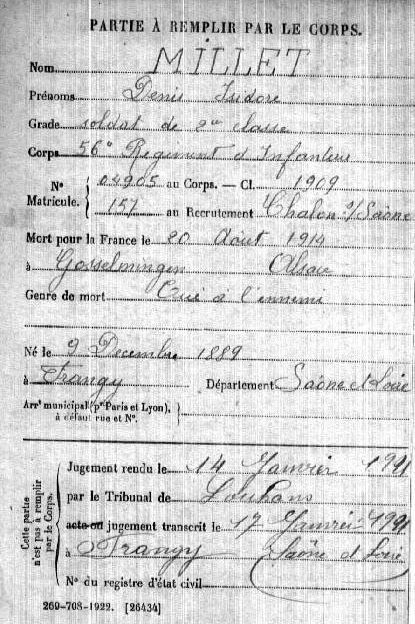 PARTIE À REMPLIR PAR LE CORPS.
Nom MILLET
Prénoms Denis Isidore
Grade soldat de 2me classe
Corps 56e Régiment d'Infanterie
No 04905 au Corps. — Cl. 1909
Matricule. 157 au Recrutement Chalon s/Saône
Mort pour la France le 20 Août 1914
à Gosselmingen Alsace
Genre de mort Tué à l'ennemi
Né le 9 Décembre 1889
à Frangy Département Saône et Loire
Arrt municipal (pr Paris et Lyon),
à défaut rue et No.
Cette partie
n'est pas à remplir
par le Corps.
Jugement rendu le 14 Janvier
par le Tribunal de Louhans
acte ou jugement transcrit le 17 Janvier
à Frangy Saône et Loire
No du registre d'état civil
260-708-1922. [26434]